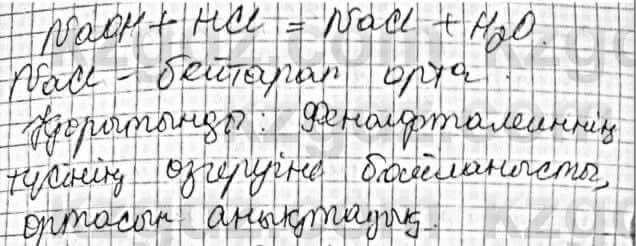 NaOH + HCl = NaCl + H₂O.
NaCl - бейтарап орта.
Қорытынды: Фенолфталеиннің
түсінің өзгеруіне байланысты,
ортасын анықтадық.